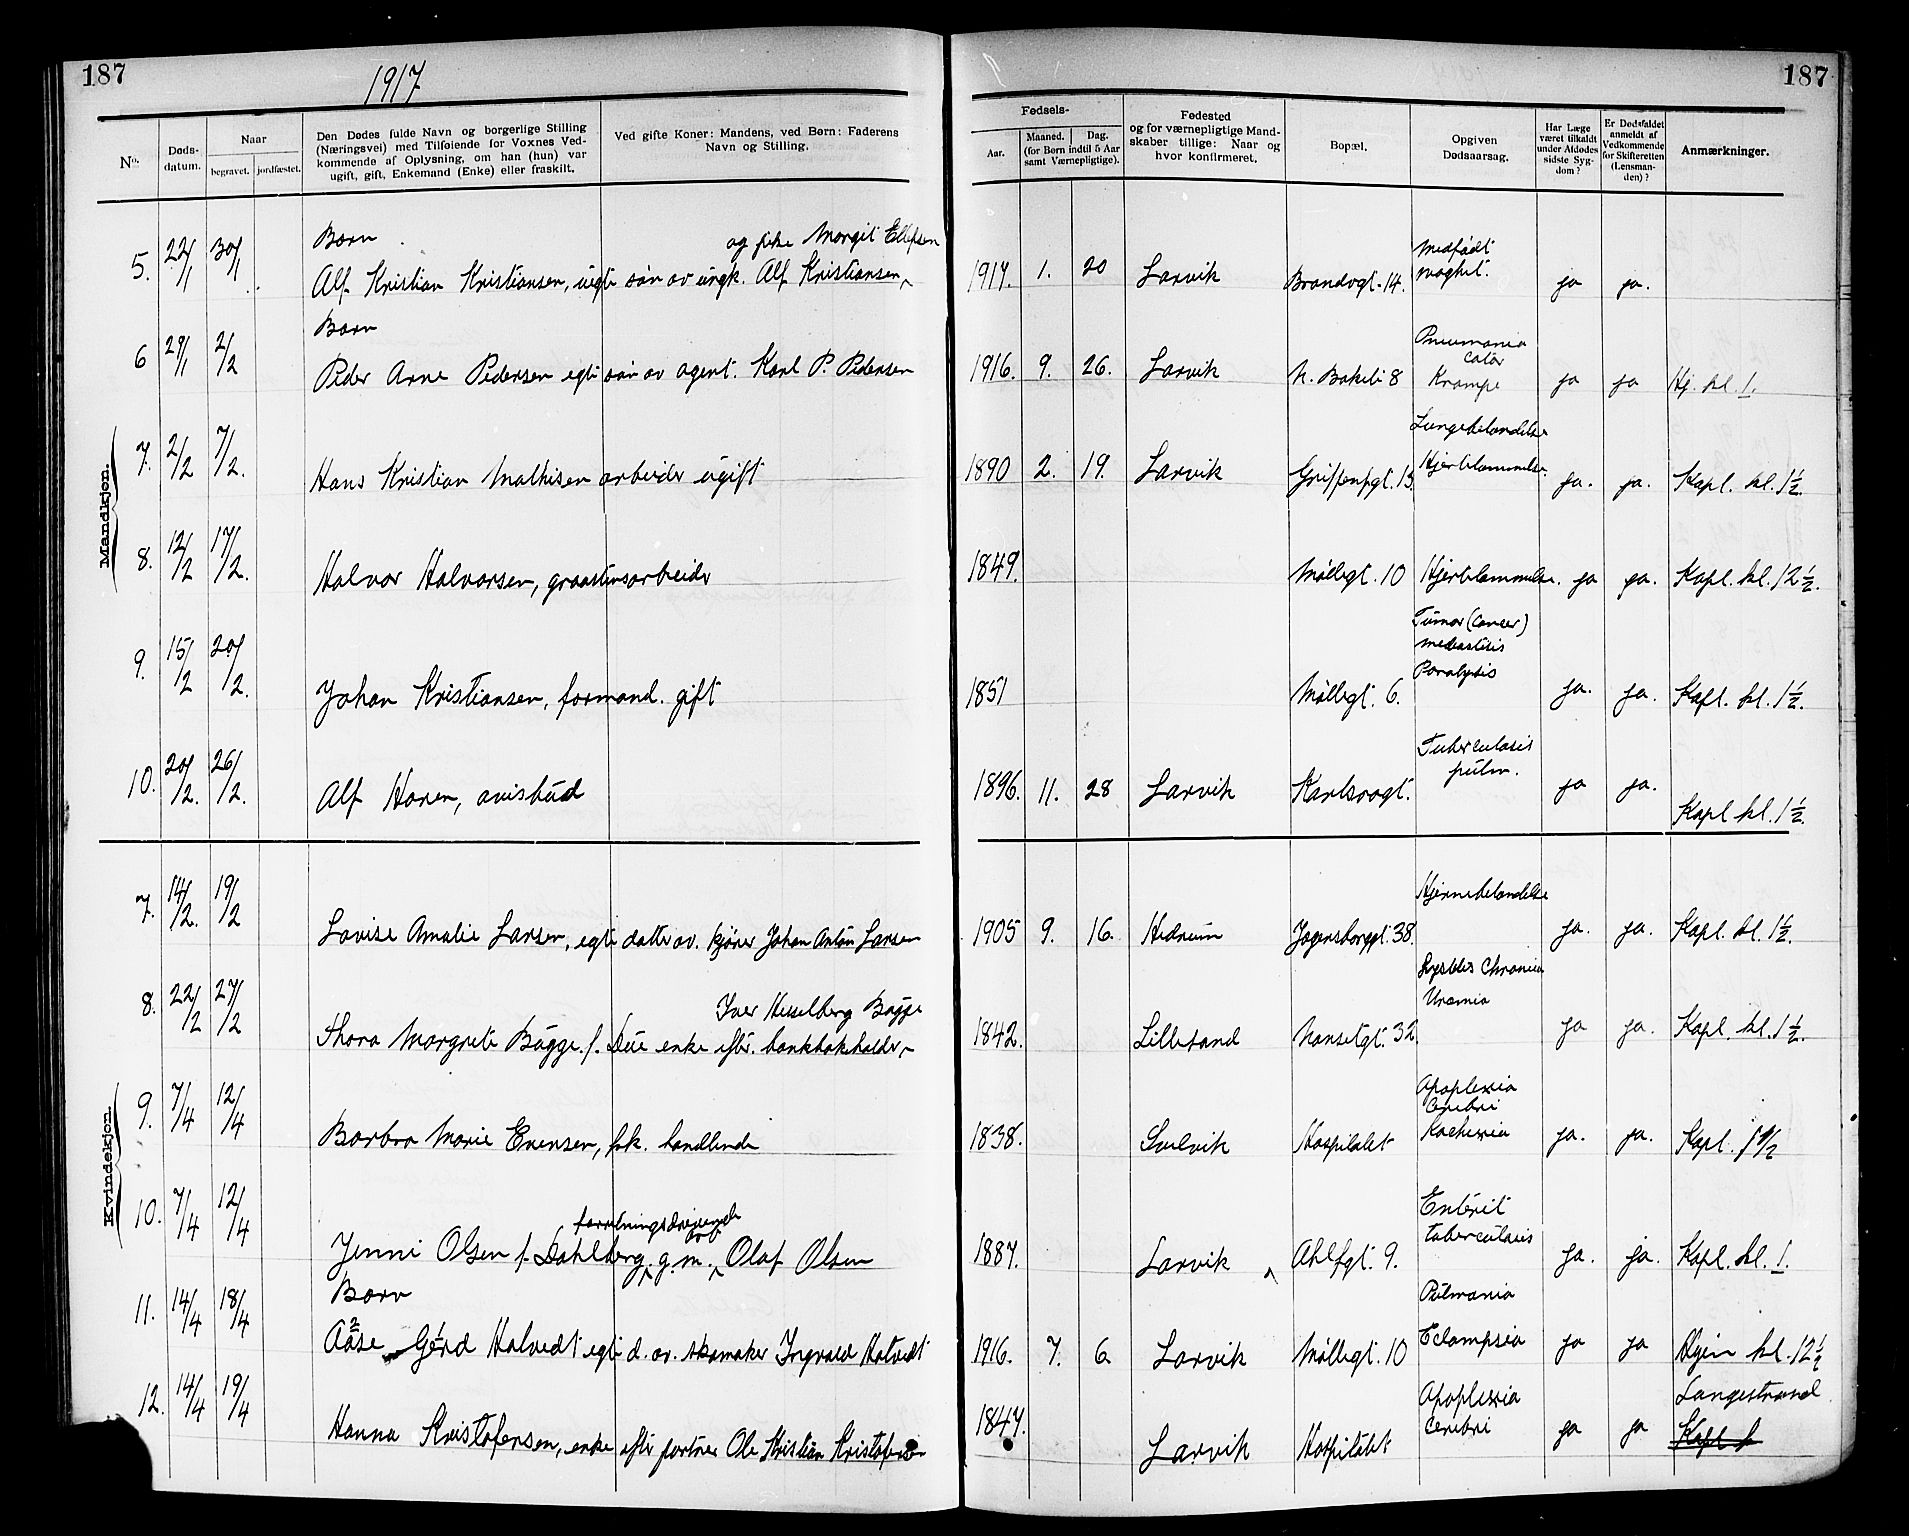 187
1917
187
No.
Døds-datum.
Naar
begravet.
jordfæstet.
Den Dødes fulde Navn og borgerlige Stilling (Næringsvei) med Tilføiende for Voxnes Vedkommende af Oplysning, om han (hun) var ugift, gift, Enkemand (Enke) eller fraskilt.
Ved gifte Koner: Mandens, ved Børn: Faderens Navn og Stilling.
Fødsels-
Aar.
Maaned.
Dag.
(for Børn indtil 5 Aar samt Værnepligtige).
Fødested og for værnepligtige Mandskaber tillige: Naar og hvor konfirmeret.
Bopæl.
Opgiven Dødsaarsag.
Har Læge været tilkaldt under Afdødes sidste Sygdom?
Er Dødsfaldet anmeldt af Vedkommende for Skifteretten (Lensmanden)?
Anmærkninger.
Mandkjøn.
5. 22/1 30/1 Barn Alf Kristian Kristiansen, uegte søn av ungk. Alf Kristiansen, og pike Margit Ellefsen 1917. 1. 20 Larvik Brandvgt. 14. Medfødt svaghet. ja ja.
6 29/1 2/2 Barn Peder Arne Pedersen egte søn av agent. Karl P. Pedersen 1916. 9. 26. Larvik N. Bakeli 8 Pneumonia Krampe ja ja Hj. kl. 1.
7. 2/2 7/2. Hans Kristian Mathisen arbeider ugift 1890 2. 19. Larvik Griffenfgt. 13. Lungebetændelse Hjertelammelse ja. ja. Kapl. kl. 1½.
8. 12/2 17/2. Halvor Halvorsen, graastensarbeider 1849. Møllegt. 10 Hjertelammelse. ja ja. Kapl. kl. 12½.
9. 15/2 20/2. Johan Kristiansen, formand. gift 1851 Møllegt. 6. Tumor (cancer) Paralysis ja. ja. Kapl. kl. 1½.
10. 20/2. 26/2. Alf Haren, avisbud 1896. 11. 28 Larvik Karlsrogt. Tuberculosis pulm. ja ja. Kapl kl. 1½.
Kvindekjøn.
7. 14/2. 19/2 Lovise Amalie Larsen, egte datter av. kjører Johan Anton Larsen 1905 9. 16. Hedrum Jegersborggt. 38. Hjernebetændelse ja. ja. Kapl. kl. 1½.
8. 22/2 27/2 Thora Margrete Bugge f. Due enke efter. bankbokholder Iver Hesselberg Bugge 1842. Lillesand Nansetgt. 32. Chronica Uræmia ja ja. Kapl. kl. 1½.
9. 7/4 12/4 Barbra Marie Evensen, frk. handlende 1838. Svelvik Hospitalet Apoplexia Cerebri Kachexia ja. ja. Kapl. 1½
10. 7/4 12/4 Jenni Olsen f. Dahlberg, g. m. forretningsdrivende Olaf Olsen 1887. Larvik Ahlfgt. 9. Enterit tuberculosis ja. ja. Kapl. kl. 1.
11. 14/4 18/4 Barn Aase Gerd Halvedt egte d. av. skomaker Ingvald Halvedt 1916. 7. 6. Larvik Møllegt. 10 Pulmonia Eclampsia ja ja Hjem kl. 12½
12. 14/4 19/4 Hanna Kristofersen, enke efter gartner Ole Kristian Kristofersen 1847. Larvik Hospitalet Apoplexia Cerebri ja ja Langestrand Kapl k